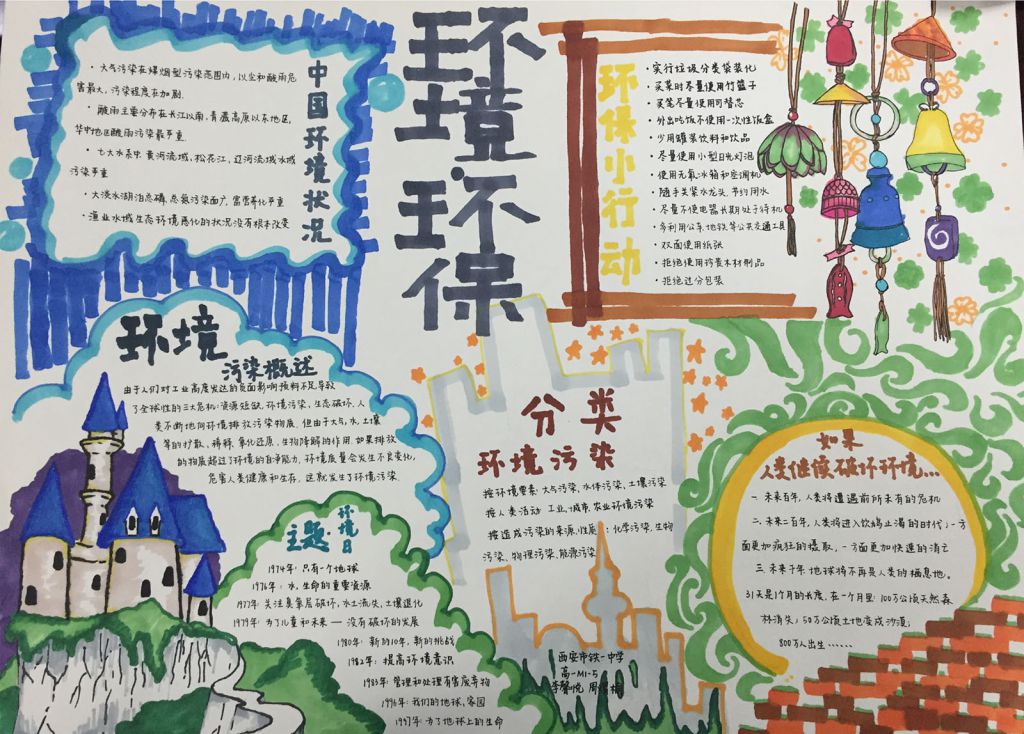 环境环保
中国环境状况
· 大气污染在煤烟型污染范围内,以尘和酸雨危
害最大,污染程度在加剧.
· 酸雨主要分布在长江以南,青藏高原以东地区,
华中地区酸雨污染最严重.
· 七大水系中 黄河流域,松花江,辽河流域水域
污染严重
· 大淡水湖泊总磷,总氮污染面广,富营养化严重
· 渔业水域生态环境恶化的状况没有根本改变
环保小行动
· 实行垃圾分类袋装化
· 买菜时尽量使用竹篮子
· 买笔尽量使用可替芯
· 外出吃饭不使用一次性饭盒
· 少用罐装饮料和饮品
· 尽量使用小型日光灯泡
· 使用无氟冰箱和空调机
· 随手关紧水龙头,节约用水
· 尽量不使电器长期处于待机
· 多利用公车,地铁等公共交通工具
· 双面使用纸张
· 拒绝使用珍贵木材制品
· 拒绝过分包装
环境
污染概述
由于人们对工业高度发达的负面影响预料不足,导致
了全球性的三大危机:资源短缺,环境污染,生态破坏.人
类不断地向环境排放污染物质.但由于大气,水,土壤
等的扩散、稀释、氧化还原、生物降解的作用.如果排放
的物质超过了环境的自净能力,环境质量会发生不良变化,
危害人类健康和生存,这就发生了环境污染.
环境日
主题
1974年:只有一个地球
1976年:水,生命的重要资源
1977年:关注臭氧层破坏,水土流失,土壤退化
1979年:为了儿童和未来——没有破坏的发展
1980年:新的10年,新的挑战
1982年:提高环境意识
1983年:管理和处理有害废弃物
1996年:我们的地球,家园
1997年:为了地球上的生命
分类
环境污染
按环境要素:大气污染,水体污染,土壤污染
按人类活动:工业,城市,农业环境污染
按造成污染的来源,性质:化学污染,生物
污染,物理污染,能源污染
西安市铁一中学
高一M1-5
如果
人类继续破坏环境...
一.未来百年,人类将遭遇前所未有的危机
二.未来二百年,人类将进入饮鸩止渴的时代,一方
面更加疯狂的攫取,一方面更加快速的消亡
三.未来千年 地球将不再是人类的栖息地。
31天是1个月的长度.在一个月里:100万公顷天然森
林消失,50万公顷土地变成沙漠;
800万人出生......